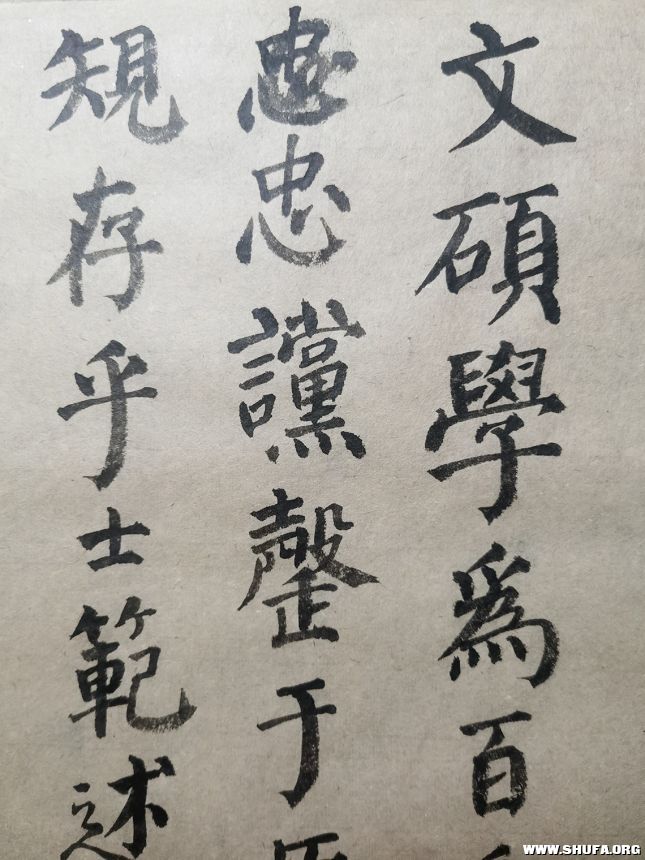 文碩學為百
忠讜罄于
規存乎士範述
WWW.SHUFA.ORG